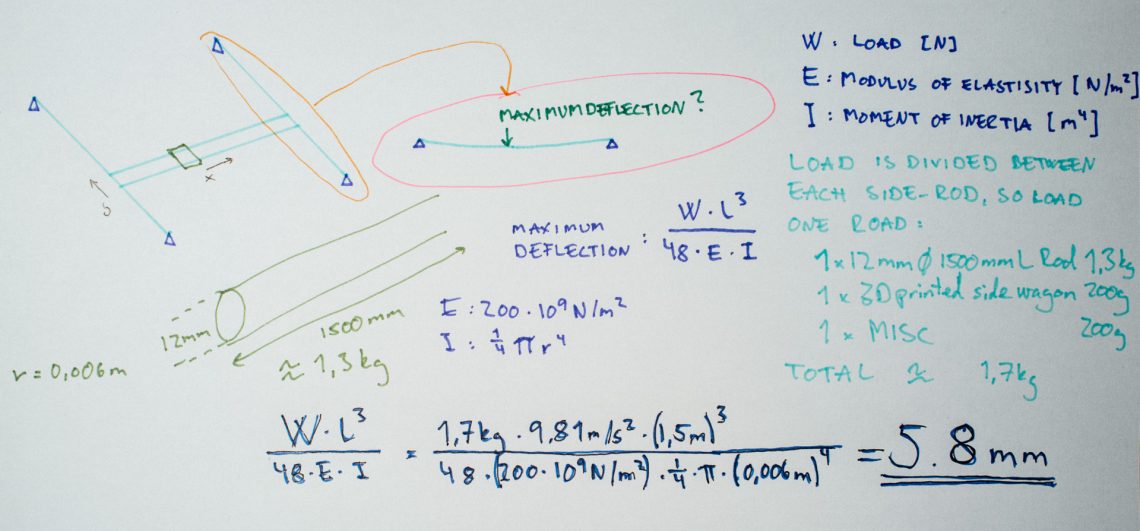 W: LOAD [N]
E: MODULUS OF ELASTISITY [N/m²]
I: MOMENT OF INERTIA [m⁴]
MAXIMUM DEFLECTION?
x
LOAD IS DIVIDED BETWEEN
EACH SIDE-ROD, SO LOAD
ONE ROAD:
1 x 12mm Ø 1500mm L Rod 1,3kg
1 x 3D printed side wagon 200g
1 x MISC 200g
TOTAL ≈ 1,7kg
MAXIMUM DEFLECTION: W·L³ / 48·E·I
E: 200·10⁹ N/m²
I: ¼ π r⁴
12mm
1500mm
≈ 1,3kg
r = 0,006m
W·L³ / 48·E·I = 1,7kg · 9,81m/s² · (1,5m)³ / 48·(200·10⁹N/m²)·¼·π·(0,006m)⁴ = 5.8mm